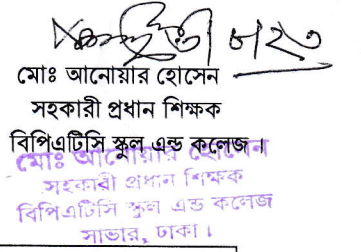 মোঃ আনোয়ার হোসেন
সহকারী প্রধান শিক্ষক
বিপিএটিসি স্কুল এন্ড কলেজ।
মোঃ আনোয়ার হোসেন
সহকারী প্রধান শিক্ষক
বিপিএটিসি স্কুল এন্ড কলেজ
সাভার, ঢাকা।